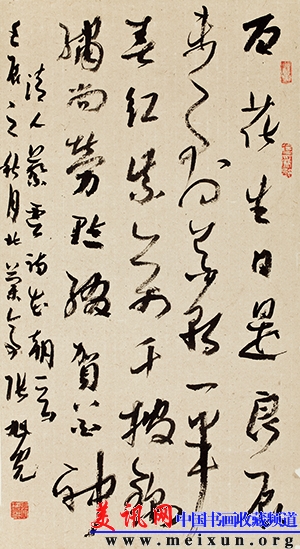 百花生日是良辰
未到花朝一半
春红紫万千披锦
繡尚勞點綴賀花神
清人蔡雲詩花朝一首
壬辰之秋月北蘭亭張旭光
美讯网 中国书画收藏频道
www.meixun.org